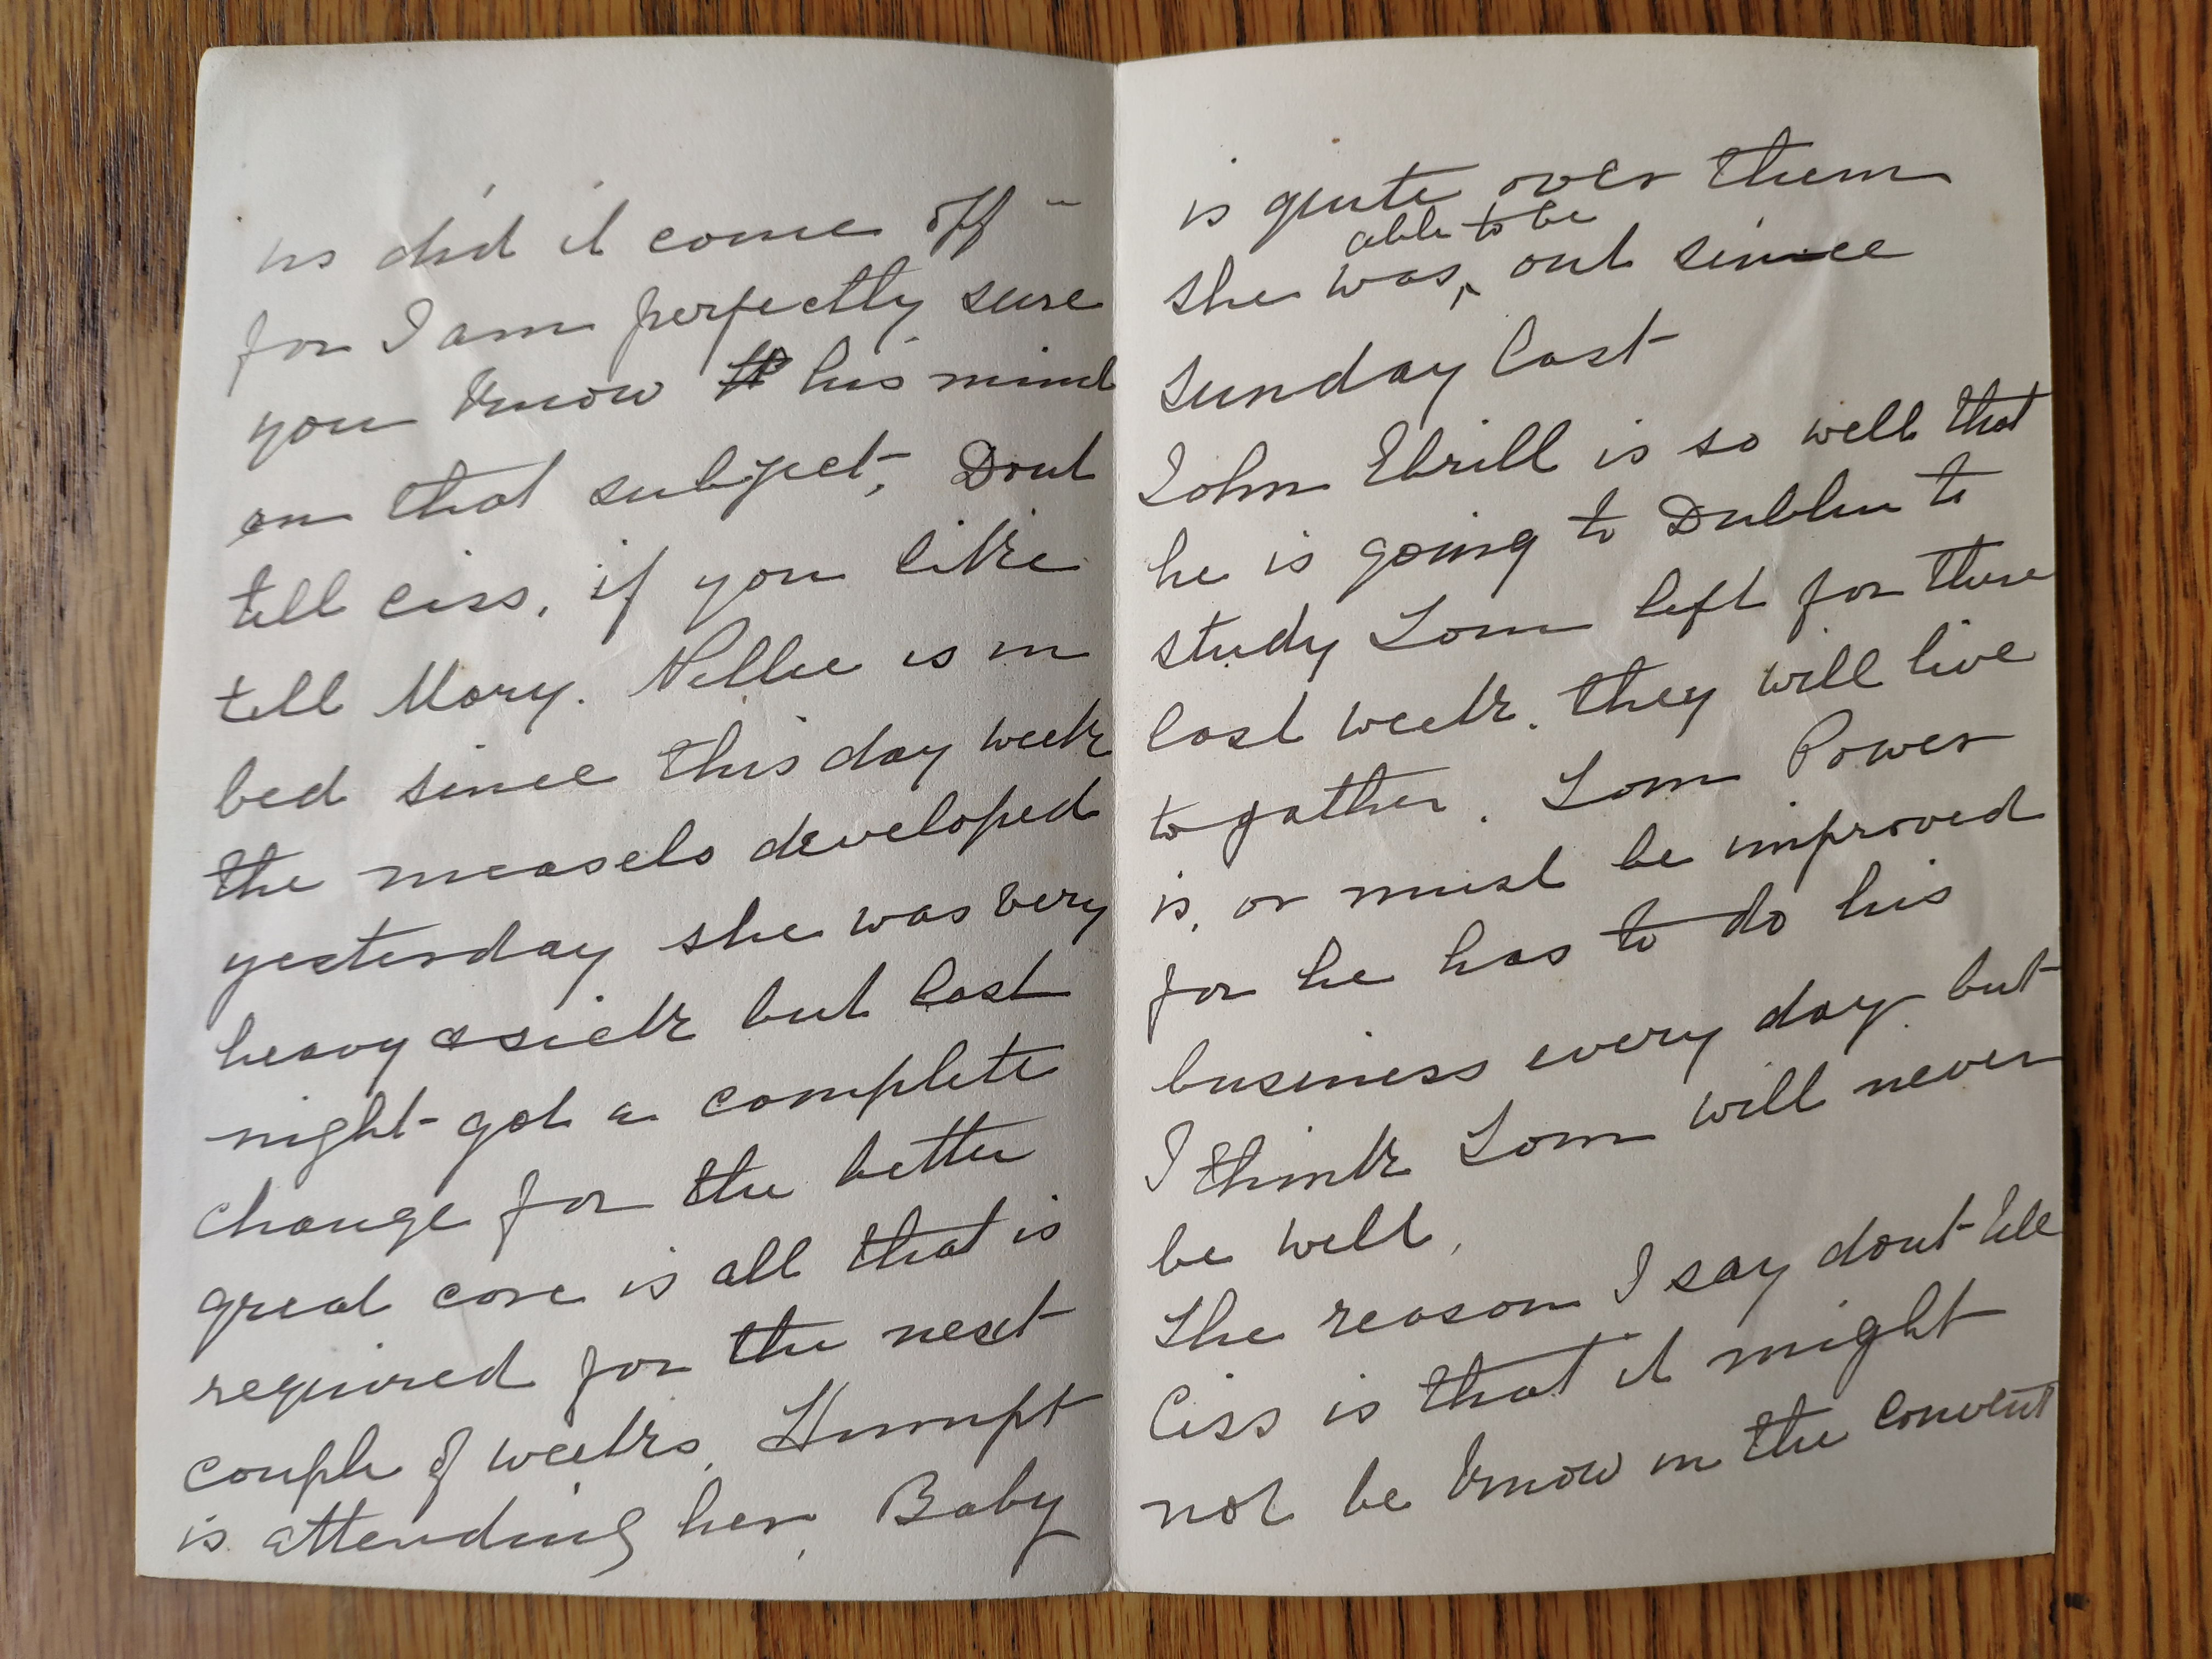 us did it come off -
for I am perfectly sure
you know his mind
on that subject, Dont
tell Ciss, if you like
tell Mary. Nellie is in
bed since this day week
the measels developed
yesterday she was very
heavy & sick but last
night got a complete
change for the better
great care is all that is
required for the next
couple of weeks.
is attending her, Baby
is quite over them
able to be
she was, out since
Sunday last
John Ebrill is so well that
he is going to Dublin to
study Tom left for there
last week. they will live
to gather. Tom Power
is, or must be improved
for he has to do his
business every day but
I think Tom will never
be well.
The reason I say dont tell
Ciss is that it might
not be know in the convent